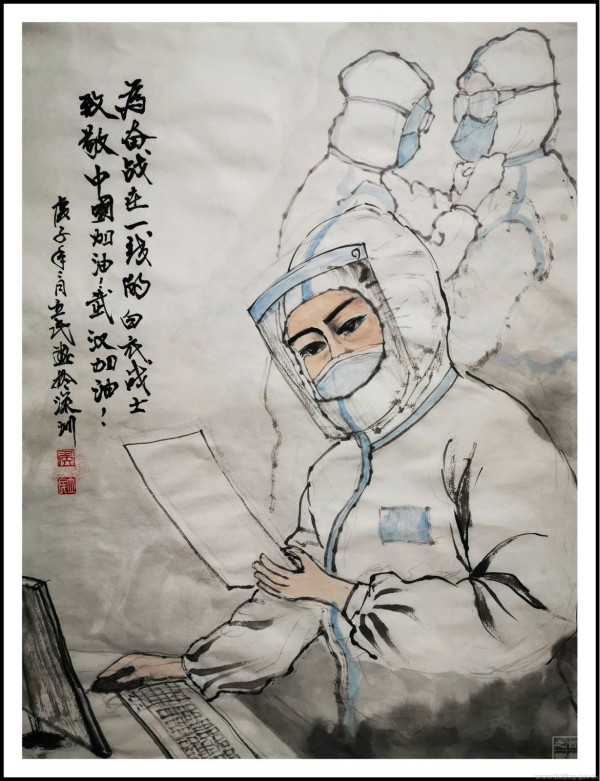 為奋战在一线的白衣战士
致敬中國加油！武汉加油！
庚子年二月民畫於深圳